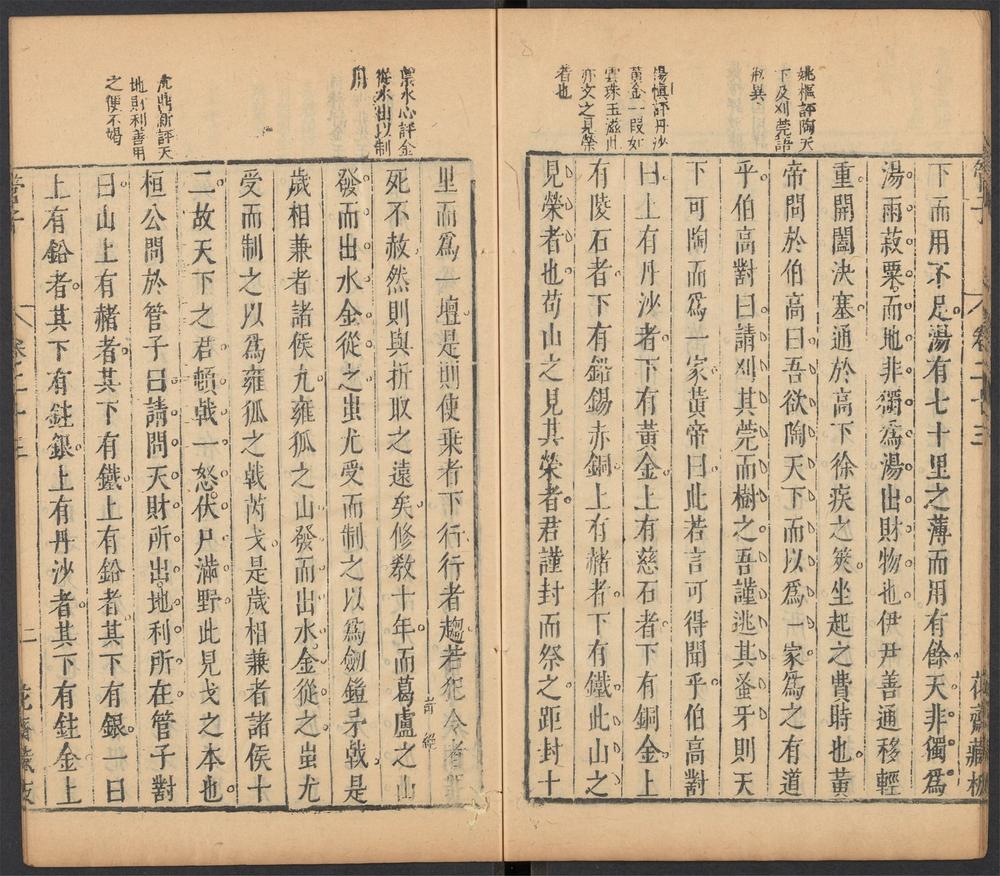 管子
卷二十三
花齋藏板
下而用不足湯有七十里之薄而用有餘天非獨爲
湯雨菽粟而地非獨爲湯出財物也伊尹善通移輕
重開闔決塞通於高下徐疾之筴坐起之費時也黃
帝問於伯高曰吾欲陶天下而以爲一家爲之有道
乎伯高對曰請刈其莞而樹之吾謹逃其蚤牙則天
下可陶而爲一家黃帝曰此若言可得聞乎伯高對
曰上有丹沙者下有黃金上有慈石者下有銅金上
有陵石者下有鉛錫赤銅上有赭者下有鐵此山之
見榮者也苟山之見其榮者君謹封而祭之距封十
姚樞評陶天
下及刈莞語
湯慎評丹沙
黃金一段如
雲珠玉滋
亦文之見榮
者也
里而爲一壇是則使乘者下行行者趨若犯令者罪
死不赦然則與折取之遠矣修教十年而葛盧之山
發而出水金從之蚩尤受而制之以爲劒鎧矛戟是
歲相兼者諸侯九雍狐之山發而出水金從之蚩尤
受而制之以爲雍狐之戟芮戈是歲相兼者諸侯十
二故天下之君頓戟一怒伏尸滿野此見戈之本也
桓公問於管子曰請問天財所出地利所在管子對
曰山上有赭者其下有鐵上有鉛者其下有銀一曰
上有鉛者其下有鉒銀上有丹沙者其下有鉒金上
水心評金
從水出以制
用
鼎新評天
地財利善用
之便不竭
管子
卷二十三
二
花齋藏板